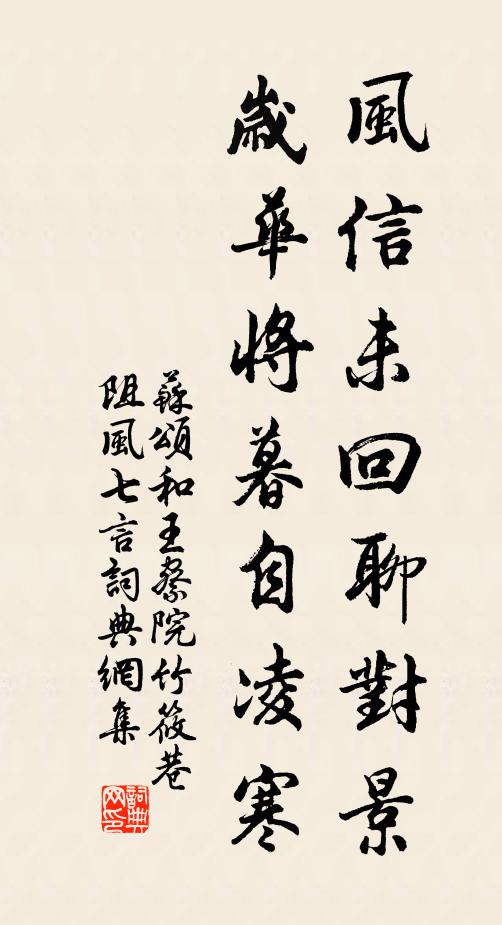 風信未回聊對景
歲華將暮自凌寒
蘇頌和王察院竹筱巷
阻風七言詞典網集
詞典
网印